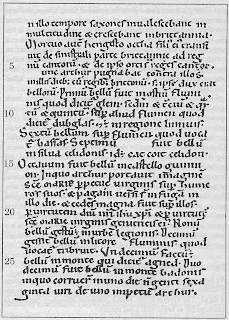 In illo tempore saxones inualescebant in
multitudine & crescebant inbrittannia.
Mortuo aut hengisto octha fili ei transi
uit de sinistrali parte brittannie ad reg
5 nū cantorū. & de ipso orti s reges cantoȝ.
Tunc arthur pugnabat contra illos.
inillis dieb; cū regib; brittonū. s; ipse dux erat
bellorū. Primū bellū fuit inostiū flumi
nis quod dicit glein. scdm & tciū & qr
10 tū & quintū. sup aliud flumen quod
dicit dubglas. & in regione linnuis.
Sextū bellum sup flumen quod uoca
t bassas. Septimū fuit bellū
insilua celidonis. id ē cat coit celidon.
15 Octauum fuit bellū incastello guinni
on. Inquo arthur portauit imagine
scē mariē ppetue uirginis sup hume
ros suos. & pagani uersi s infuga in
illo die. & cedes magna fuit sup illos.
20 p uirtutem dni nri ihu xpi & p uirtutē
scē mariē uirginis genitricis ei. Nonū
bellū gestū ē inurbe legionis. Decimū
gessit bellū inlitore fluminis quod
uocat tribruit. Undecimū factū ē
25 bellū inmonte qui dicit agned. Duo
decimū fuit bellū inmonte badonis
inquo corruer inuno die nongenti sexa
ginta uiri de uno impetu arthur.